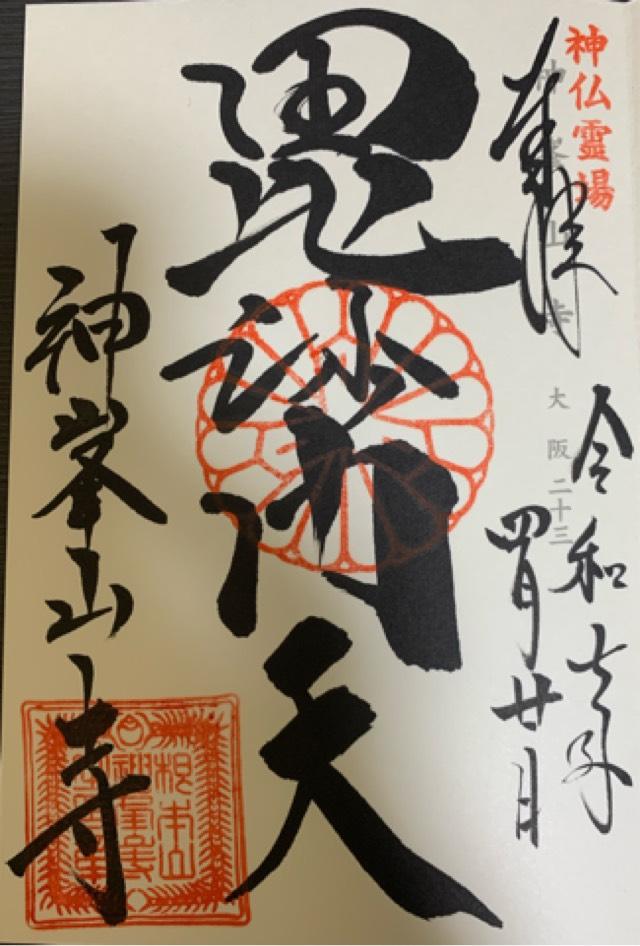 神仏霊場
神峯山寺 大阪 二十三
奉拝
令和七年
四月廿日
毘沙門天
神峯山寺
根本山